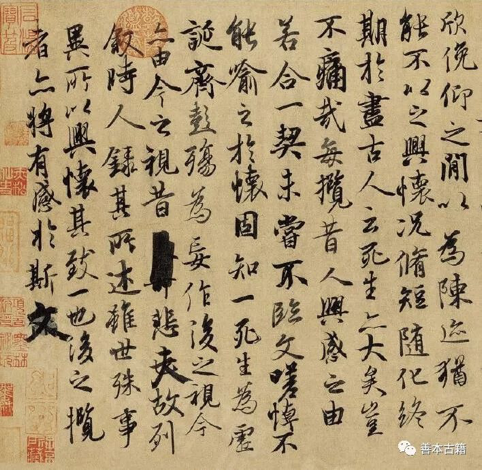 欣俛仰之閒以爲陳迹猶不
能不以之興懷况脩短隨化終
期於盡古人云死生亦大矣豈
不痛哉每攬昔人興感之由
若合一契未嘗不臨文嗟悼不
能喻之於懷固知一死生爲虛
誕齊彭殤爲妄作後之視今
亦由今之視昔悲夫故列
叙時人錄其所述雖世殊事
異所以興懷其致一也後之攬
者亦將有感於斯文
善本古籍